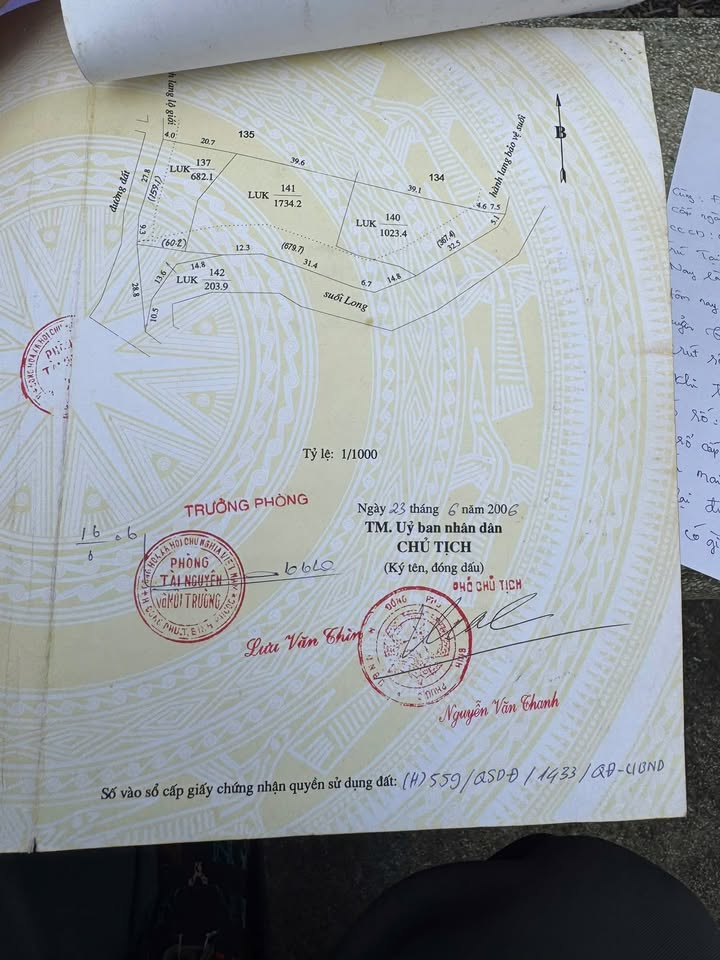 h lang lộ giới
4.0
20.7
135
39.6
134
39.1
4.6 7.5
5.1
hành lang bảo vệ suối
B
đường đất
27.8
(159.1)
LUK 137
682.1
LUK 141
1734.2
LUK 140
1023.4
9.3
(60.2)
12.3
(679.7)
31.4
6.7
14.8
(367.4)
32.5
28.8
13.6
1
14.8
LUK 142
203.9
10.5
suối Long
Tỷ lệ: 1/1000
TRƯỞNG PHÒNG
Ngày 23 tháng 6 năm 2006
TM. Uỷ ban nhân dân
CHỦ TỊCH
(Ký tên, đóng dấu)
PHÓ CHỦ TỊCH
PHÒNG
TÀI NGUYÊN
VÀ MÔI TRƯỜNG
Lưu Văn Thìn
Nguyễn Văn Thanh
Số vào sổ cấp giấy chứng nhận quyền sử dụng đất: (H) 559/QSDĐ/1433/QĐ-UBND